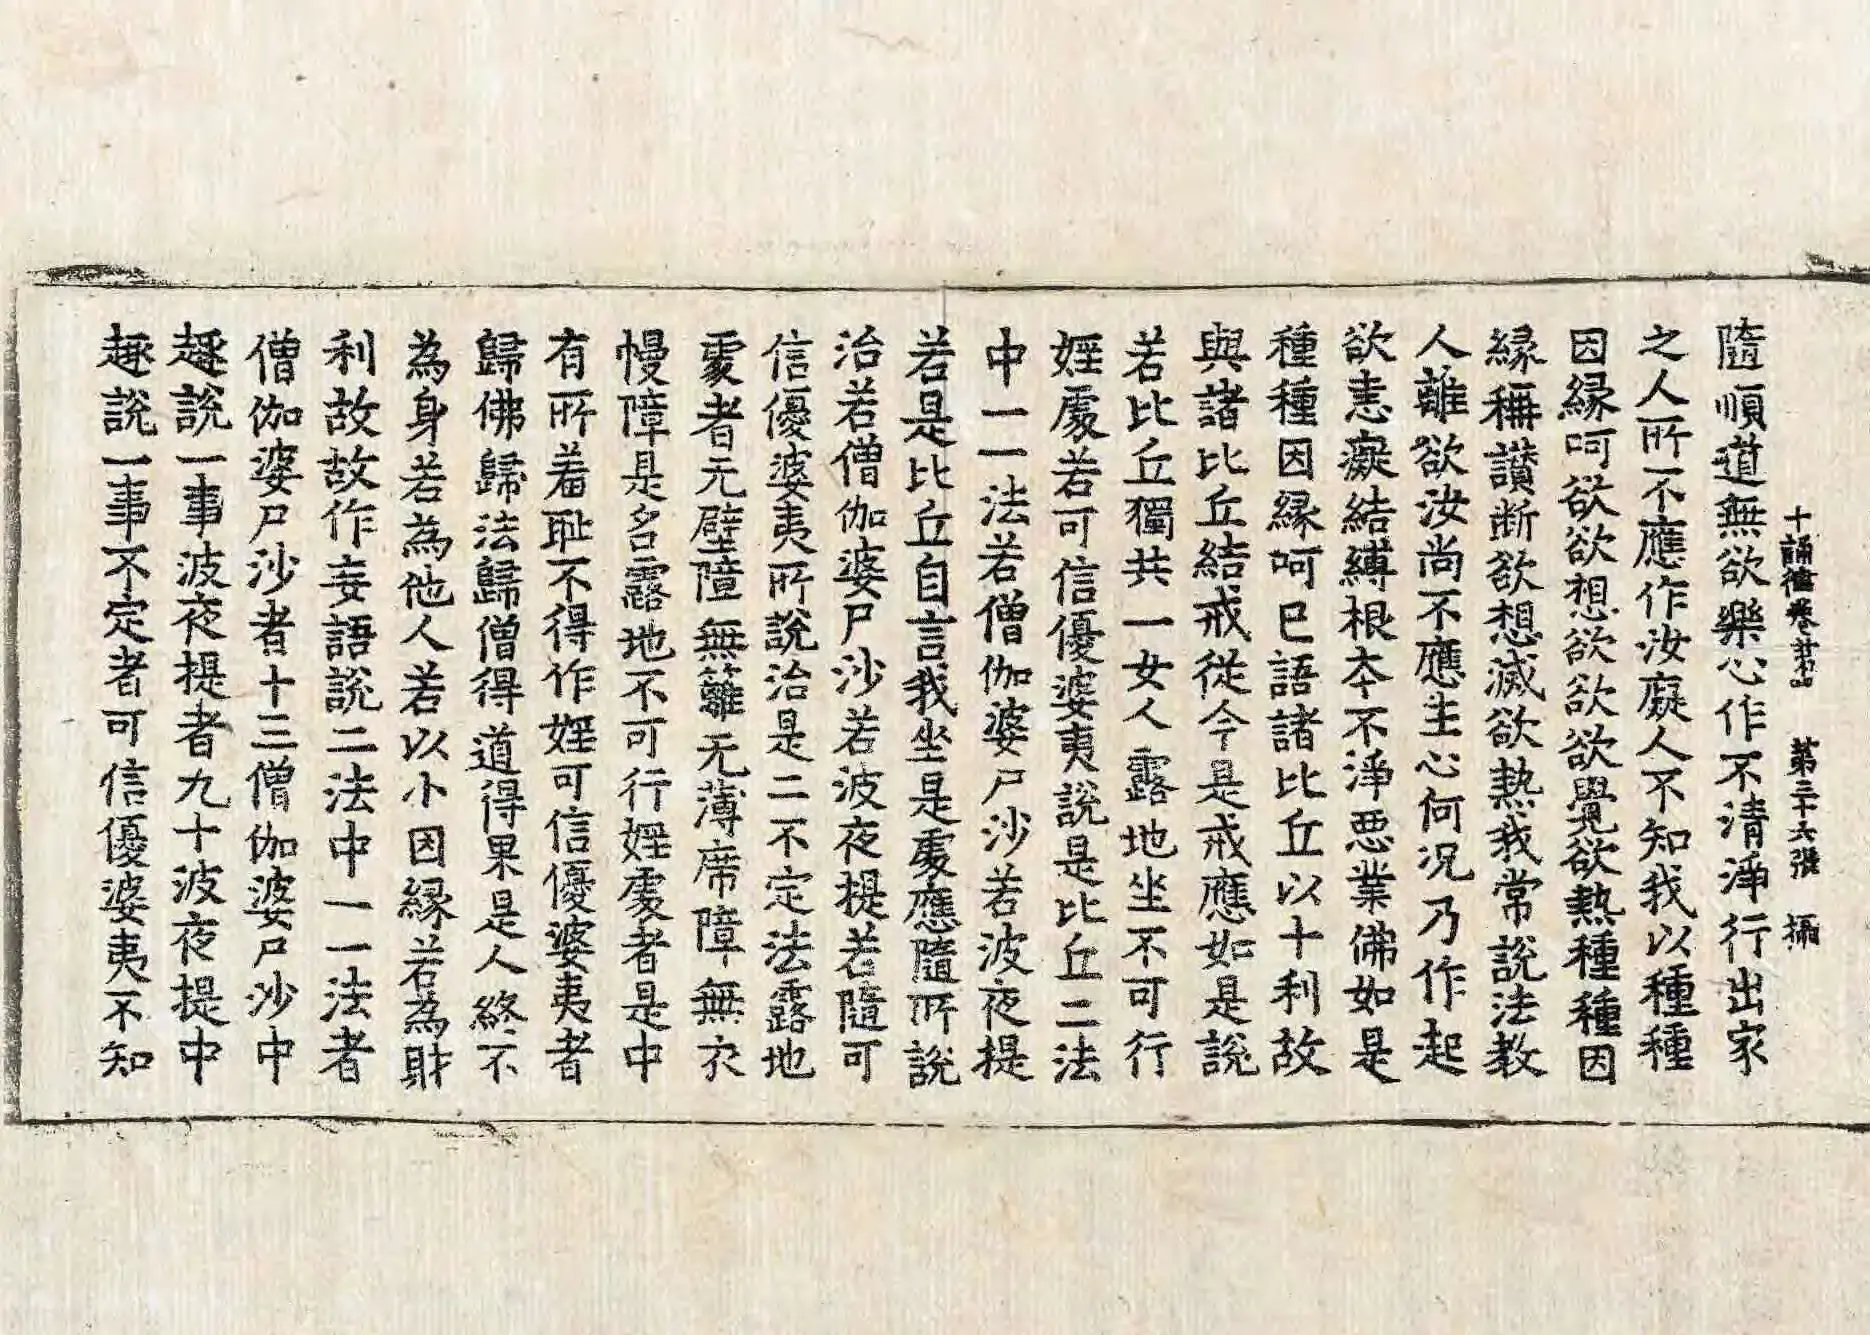 十誦律卷第四 第三十六張 攝
隨順道無欲樂心作不清淨行出家
之人所不應作汝癡人不知我以種種
因緣呵欲欲想欲欲欲覺欲熱種種因
緣稱讃斷欲想滅欲熱我常說法教
人離欲汝尚不應生心何況乃作起
欲恚癡結縛根夲不淨惡業佛如是
種種因緣呵已語諸比丘以十利故
與諸比丘結戒從今是戒應如是說
若比丘獨共一女人露地坐不可行
婬處若可信優婆夷說是比丘二法
中一一法若僧伽婆尸沙若波夜提
若是比丘自言我坐是處應隨所說
治若僧伽婆尸沙若波夜提若隨可
信優婆夷所說治是二不定法露地
處者无壁障無籬无薄席障無衣
幔障是名露地不可行婬處者是中
有所羞耻不得作婬可信優婆夷者
歸佛歸法歸僧得道得果是人終不
為身若為他人若以小因緣若為財
利故故作妄語說二法中一一法者
僧伽婆尸沙者十三僧伽婆尸沙中
趣說一事波夜提者九十波夜提中
趣說一事不定者可信優婆夷不知